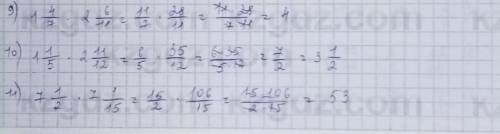 9) 1 4/7 · 2 6/11 = 11/7 · 28/11 = 11·28/7·11 = 4
10) 1 1/5 · 2 11/12 = 6/5 · 35/12 = 6·35/5·12 = 7/2 = 3 1/2
11) 7 1/2 · 7 1/15 = 15/2 · 106/15 = 15·106/2·15 = 53